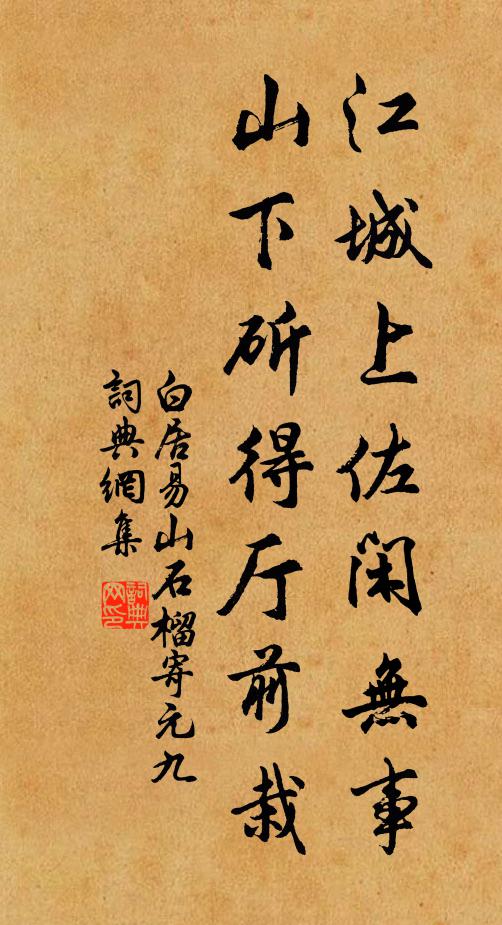 江城上佐閑無事
山下斫得厅前栽
白居易山石榴寄元九
詞典網集
詞典
网印